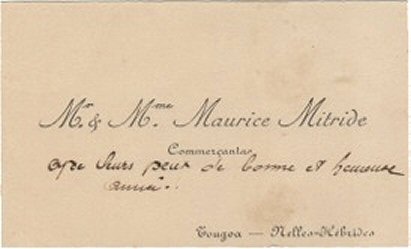 Mr. & Mme. Maurice Mitride
Commerçants
leurs de bonne et heureuse
année.
Tongoa — Nelles-Hébrides